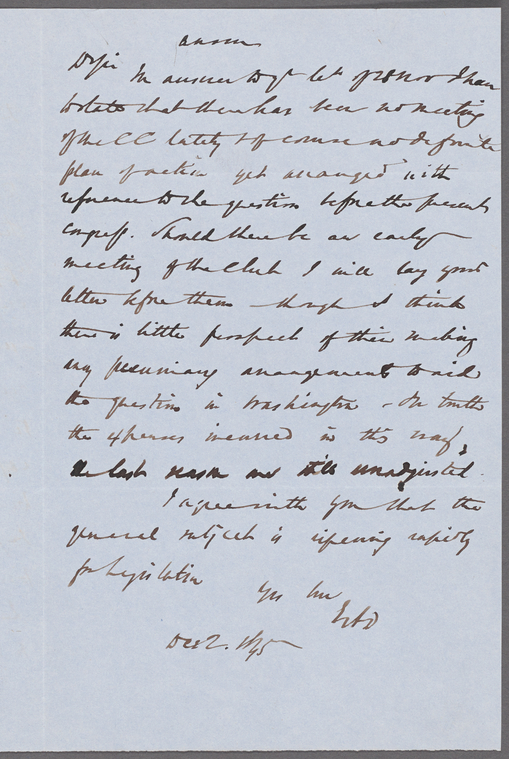 answer
D Sir In answer to yr let of 28 Nov I have
to state that there has been no meeting
of the CC lately & of course no definite
plan of action yet arranged with
reference to the question before the present
congress. Should there be an early
meeting of the Club I will lay your
letter before them though I think
there is little prospect of their making
any pecuniary arrangements to aid
the question in Washington - In truth
the expenses incurred in this way
the last season are still unadjusted.
I agree with you that the
general subject is ripening rapidly
for Legislation
Yrs
Dec 2.